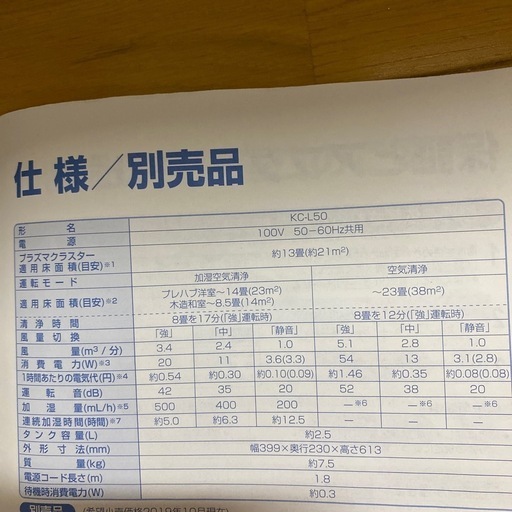 仕様／別売品
形名 KC-L50
電源 100V 50－60Hz共用
プラズマクラスター
適用床面積(目安)※1 約13畳(約21m²)
運転モード 加湿空気清浄 空気清浄
適用床面積(目安)※2 プレハブ洋室～14畳(23m²) ～23畳(38m²)
木造和室～8.5畳(14m²)
清浄時間 8畳を17分(「強」運転時) 8畳を12分(「強」運転時)
風量切換 「強」 「中」 「静音」 「強」 「中」 「静音」
風量(m³/分) 3.4 2.4 1.0 5.1 2.8 1.0
消費電力(W)※3 20 11 3.6(3.3) 54 13 3.1(2.8)
1時間あたりの電気代(円)※4 約0.54 約0.30 約0.10(0.09) 約1.46 約0.35 約0.08(0.08)
運転音(dB) 42 35 20 52 38 20
加湿量(mL/h)※5 500 400 200 ―※6 ―※6 ―※6
連続加湿時間(時間)※7 約5.0 約6.3 約12.5
タンク容量(L) 約2.5
外形寸法(mm) 幅399×奥行230×高さ613
質量(kg) 約7.5
電源コード長さ(m) 1.8
待機時消費電力(W) 約0.3
別売品 (希望小売価格2019年10月現在)